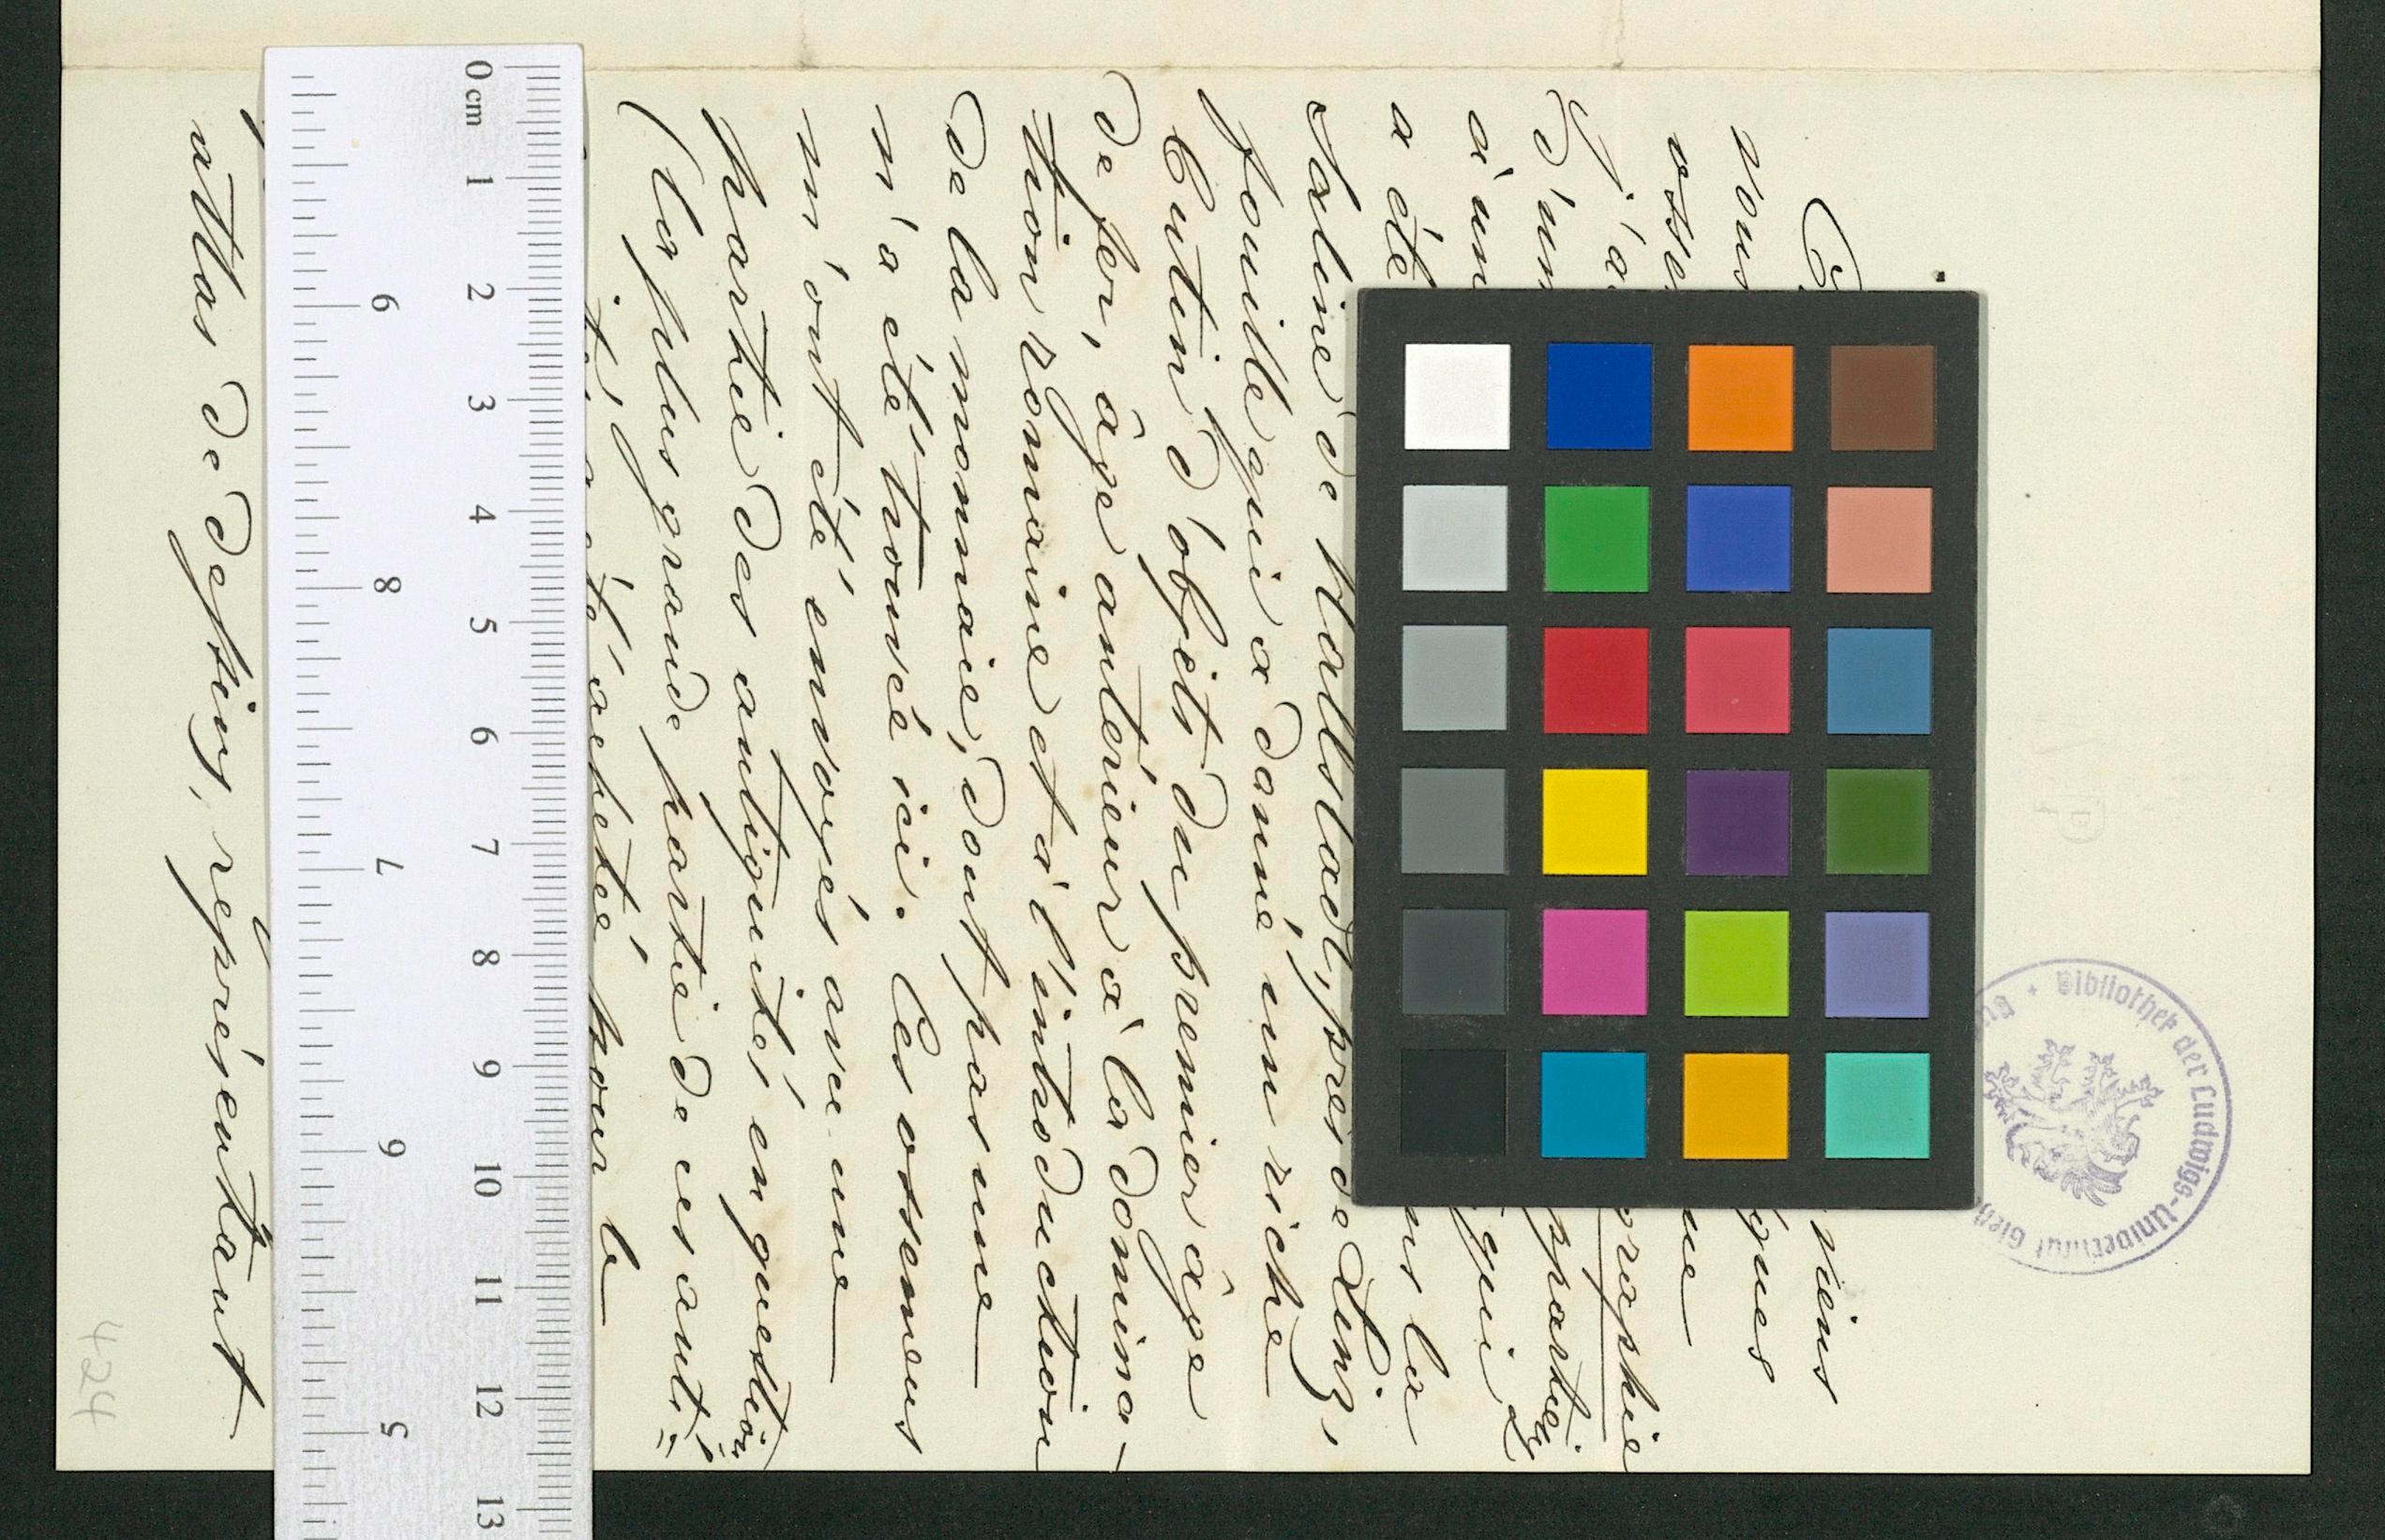 viens
vous gues
osse ne
J'a graphie
D'un partie
d'un qui
a été ns la
saline de Hallstadt, près de Linz,
fouille qui a donné un riche
butin d'objets du premier âge
de fer, âge antérieur à la domina-
tion romaine et à l'introduction
de la monnaie, dont pas une
n'a été trouvée ici. Ces ossemens
m'ont été envoyés avec une
partie des antiquités en question
(la plus grande partie de ces anti=
quités, a été achetée pour le
atlas de dessins, représentant
Bibliothek der Ludwigs-Universität Gieß
0 cm 1 2 3 4 5 6 7 8 9 10 11 12 13
424